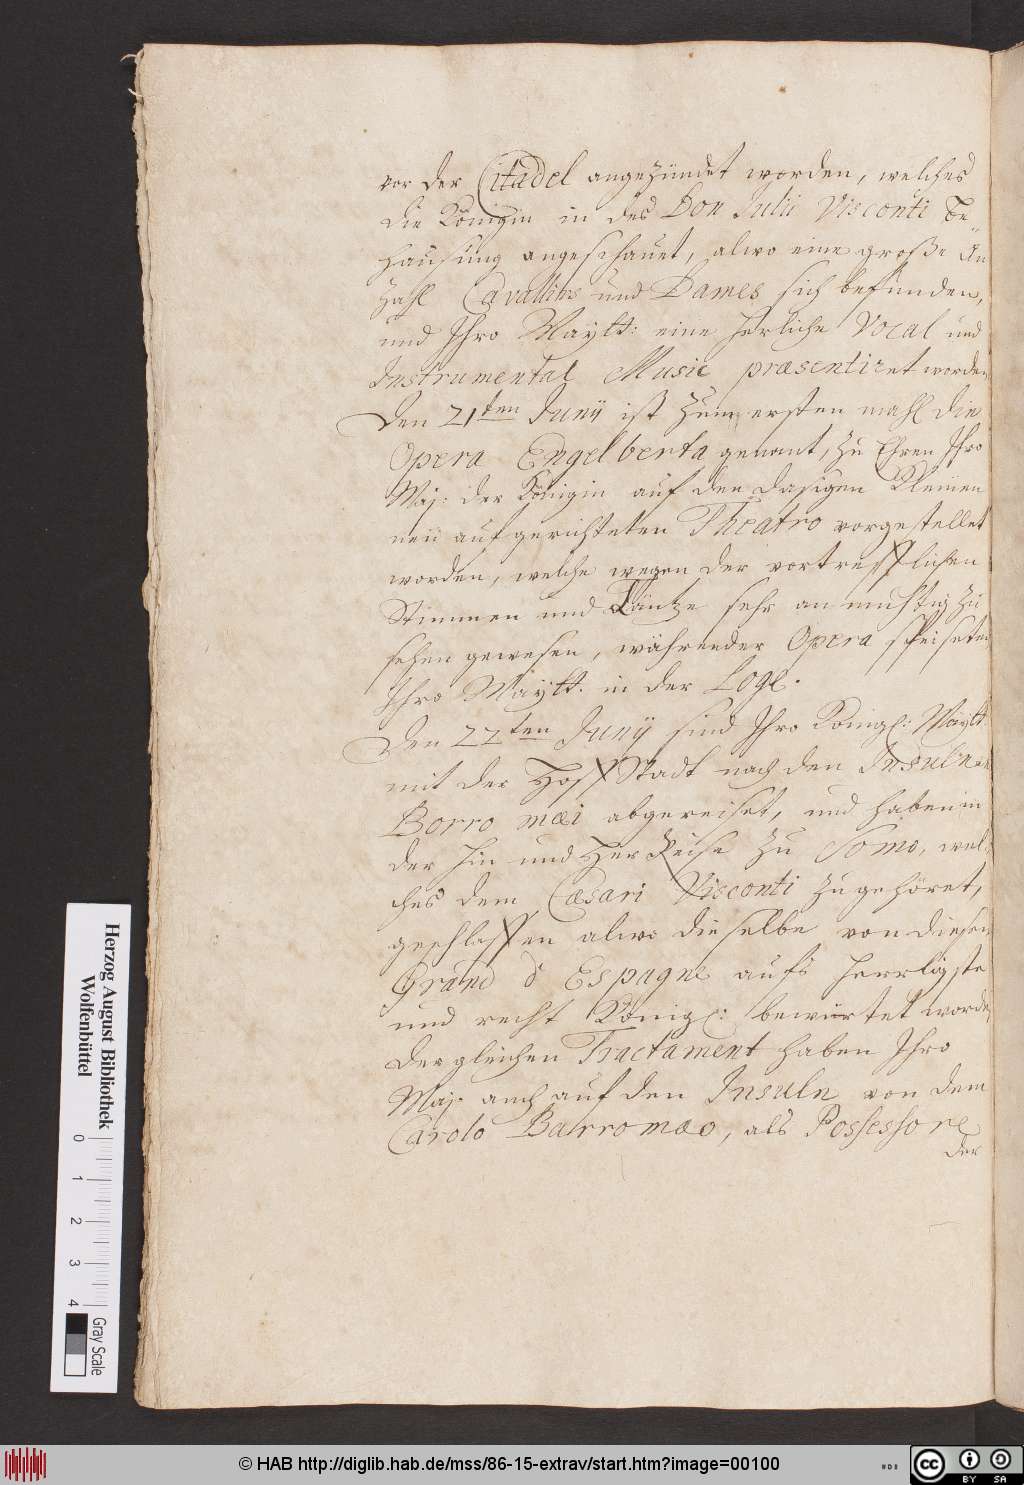 vor der Citadel angezündet worden, welches
die Königin in des Don Julii Visconti Be-
hausung angeschauet, alwo eine große An
zahl Cavalliers und Dames sich befunden,
und Ihro Maÿtt: eine herliche Vocal und
Instrumental Music præsentiret worden
Den 21ten Junÿ ist zum ersten mahl die
Opera Engelberta genant, zu Ehren Ihro
Maj: der Königin auf den dasigen Kleinen
neü aufgerichteten Theatro vorgestellet
worden, welche wegen der vortrefflichen
Stimmen und Täntze sehr anmuhtig zu
sehen gewesen, währender Opera speiseten
Ihro Maÿtt. in der Loge.
Den 22ten Junÿ sind Ihro Königl: Maÿtt.
mit der Hoff Stadt nach den Insuln
Borromæi abgereiset, und haben in
der hin und Her Reise zu Somo, wel-
ches dem Cæsari Visconti zugehöret,
geschlaffen alwo dieselbe von diesen
Grand d Espagne aufs herrligste
und recht Königl: bewürtet worden
dergleichen Tractament haben Ihro
Maj: auch auf den Insuln von dem
Carolo Barromæo, als Possessore
der
Herzog August Bibliothek
Wolfenbüttel
0 1 2 3 4
Gray Scale
© HAB http://diglib.hab.de/mss/86-15-extrav/start.htm?image=00100
cc BY SA